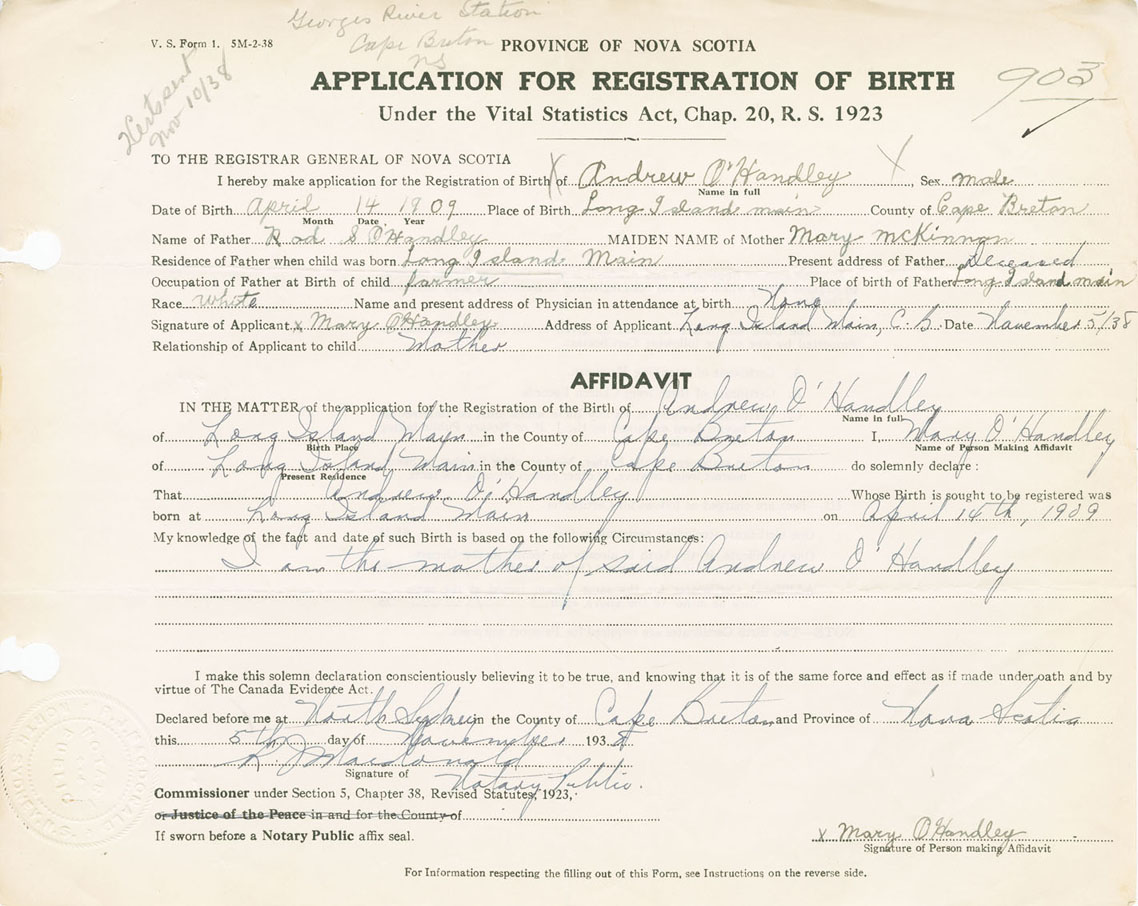 Georges River Station
Cape Breton
NS
V. S. Form 1. 5M-2-38
PROVINCE OF NOVA SCOTIA
Nov 10/38
APPLICATION FOR REGISTRATION OF BIRTH
903
Under the Vital Statistics Act, Chap. 20, R. S. 1923
TO THE REGISTRAR GENERAL OF NOVA SCOTIA
I hereby make application for the Registration of Birth of X Andrew O'Handley X Sex male
Name in full
Date of Birth April 14 1909 Place of Birth Long Island main County of Cape Breton
Month Date Year
Name of Father Rod S O'Handley MAIDEN NAME of Mother Mary McKinnon
Residence of Father when child was born Long Island Main Present address of Father Deceased
Occupation of Father at Birth of child farmer Place of birth of Father Long Island main
Race White Name and present address of Physician in attendance at birth None
Signature of Applicant x Mary O'Handley Address of Applicant Long Island Main, C. B. Date November 5/38
Relationship of Applicant to child Mother
AFFIDAVIT
IN THE MATTER of the application for the Registration of the Birth of Andrew O'Handley
Name in full
of Long Island Main in the County of Cape Breton I, Mary O'Handley
Birth Place Name of Person Making Affidavit
of Long Island Main in the County of Cape Breton do solemnly declare :
Present Residence
That Andrew O'Handley Whose Birth is sought to be registered was
born at Long Island Main on April 14th, 1909
My knowledge of the fact and date of such Birth is based on the following Circumstances:
I am the mother of said Andrew O'Handley
I make this solemn declaration conscientiously believing it to be true, and knowing that it is of the same force and effect as if made under oath and by
virtue of The Canada Evidence Act.
Declared before me at North Sydney in the County of Cape Breton and Province of Nova Scotia
this 5th day of November 1938
Macdonald
Signature of Notary Public.
Commissioner under Section 5, Chapter 38, Revised Statutes, 1923,
or Justice of the Peace in and for the County of
If sworn before a Notary Public affix seal.
x Mary O'Handley
Signature of Person making Affidavit
For Information respecting the filling out of this Form, see Instructions on the reverse side.